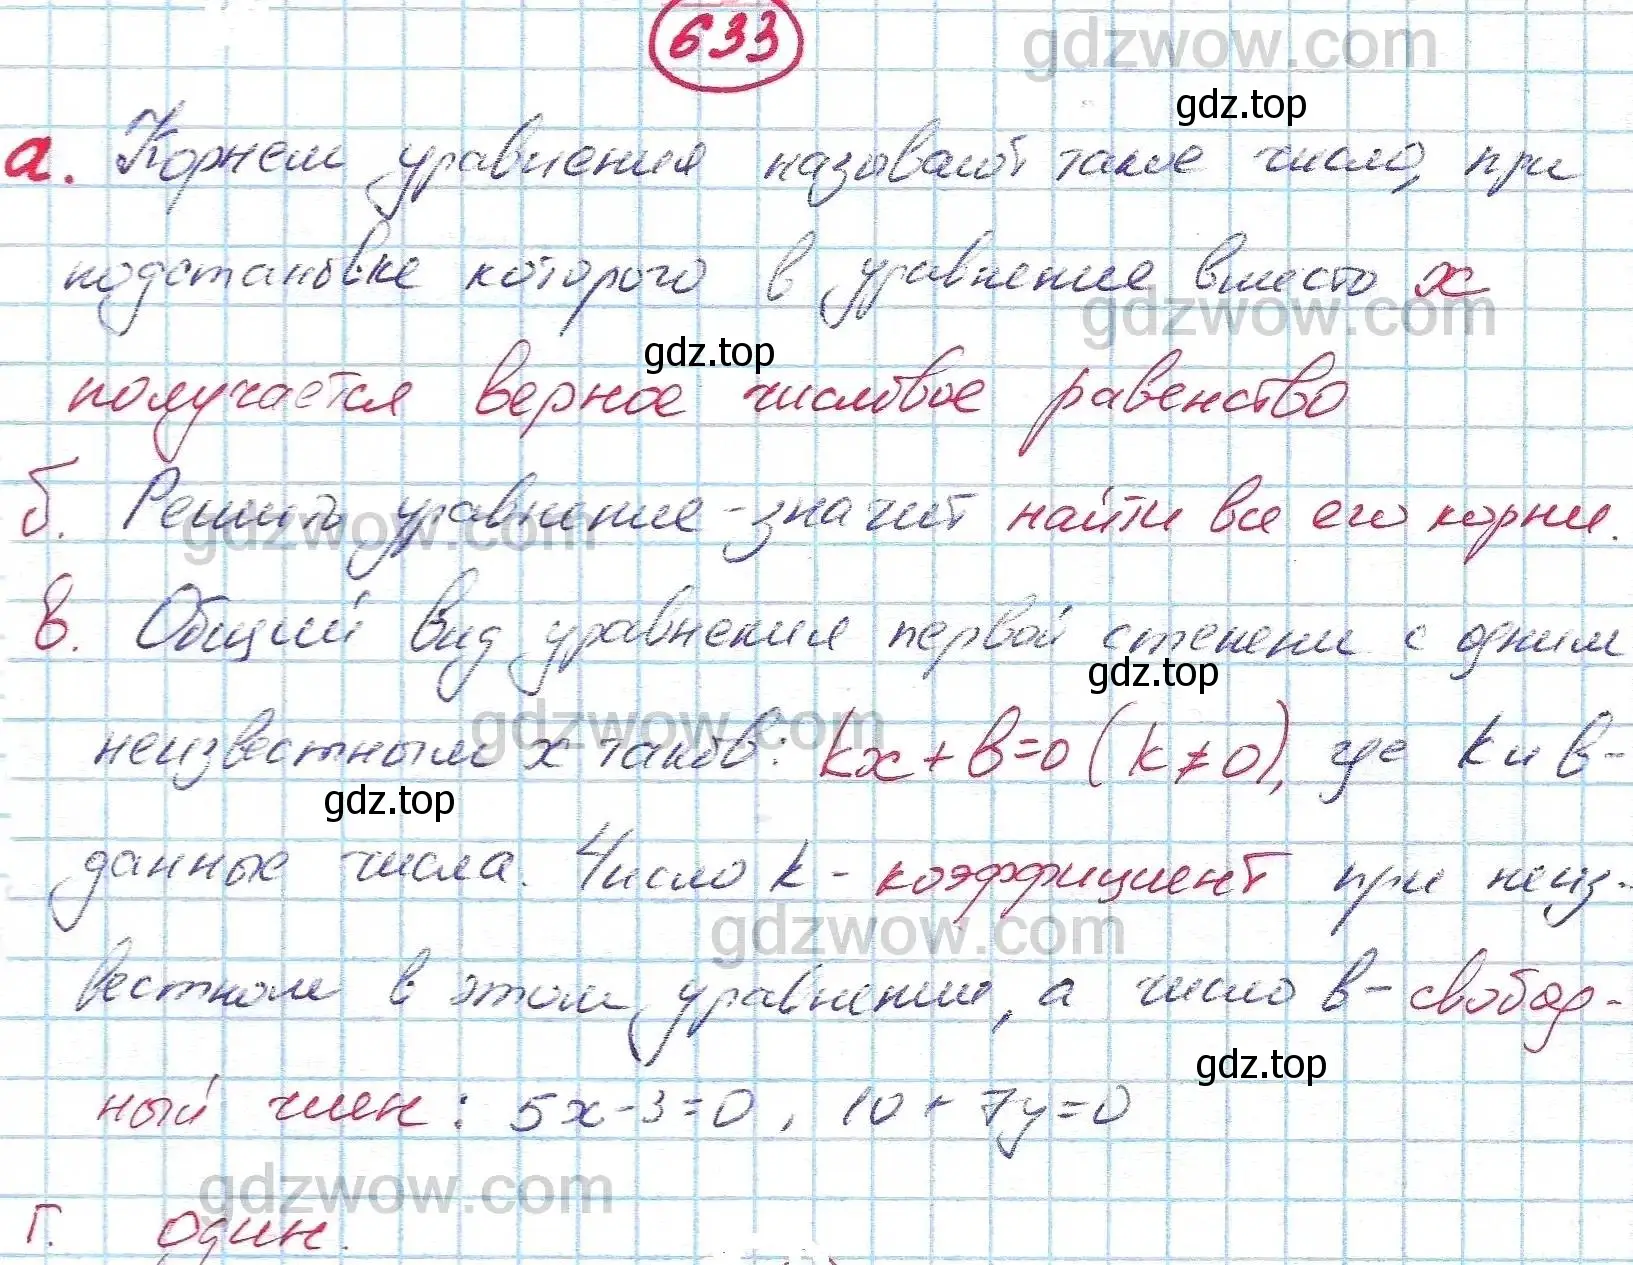 633
gdzwow.com
gdz.top
а. Корнем уравнения называют такое число, при
подстановке которого в уравнение вместо x
gdzwow.com
gdz.top
получается верное числовое равенство
б. Решить уравнение - значит найти все его корни.
gdzwow.com
в. Общий вид уравнения первой степени с одним
gdz.top
неизвестным x таков: kx + b = 0 (k ≠ 0), где k и b -
gdzwow.com
gdz.top
данные числа. Число k - коэффициент при неиз-
gdzwow.com
вестном в этом уравнении, а число b - свобод-
gdz.top
ный член: 5x - 3 = 0, 10 + 7y = 0
gdzwow.com
г. один.